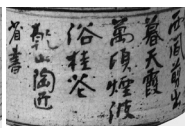 西風剪出
暮天霞
萬頃煙波
浴桂花
乾山陶匠
省書